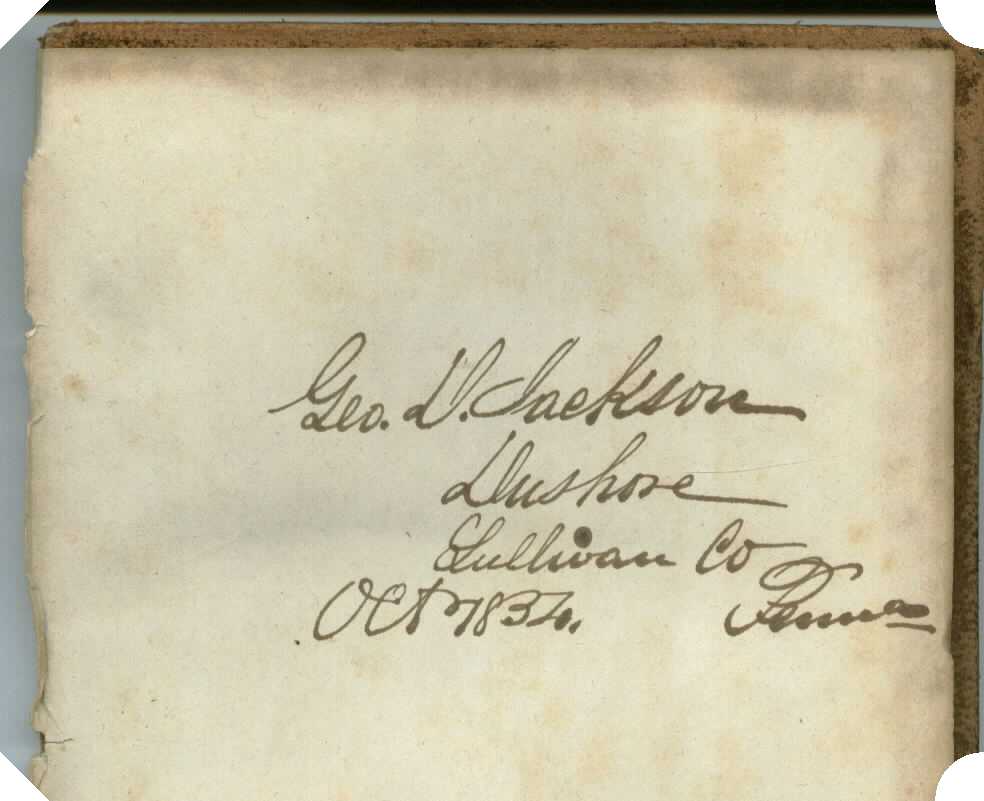 Geo. D. Jackson
Dushore
Sullivan Co
Oct 1834. Penna